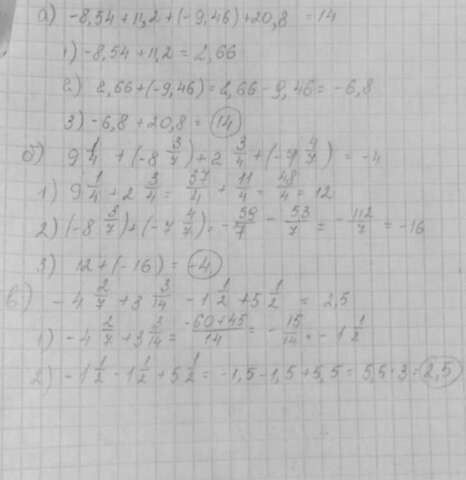 а) -8,54+11,2+(-9,46)+20,8 = 14
1) -8,54+11,2 = 2,66
2) 2,66+(-9,46) = 2,66-9,46 = -6,8
3) -6,8+20,8 = 14
б) 9 1/4 + (-8 3/7) + 2 3/4 + (-7 4/7) = -4
1) 9 1/4 + 2 3/4 = 37/4 + 11/4 = 48/4 = 12
2) (-8 3/7) + (-7 4/7) = -59/7 - 53/7 = -112/7 = -16
3) 12+(-16) = -4
в) -4 2/7 + 3 3/14 - 1 1/2 + 5 1/2 = 2,5
1) -4 2/7 + 3 3/14 = -60+45/14 = -15/14 = -1 1/2
2) -1 1/2 - 1 1/2 + 5 1/2 = -1,5-1,5+5,5 = 5,5-3 = 2,5